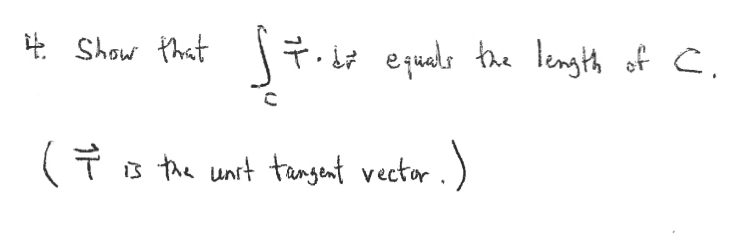 4. Show that ∫_C T⃗ · dr⃗ equals the length of C.
(T⃗ is the unit tangent vector.)